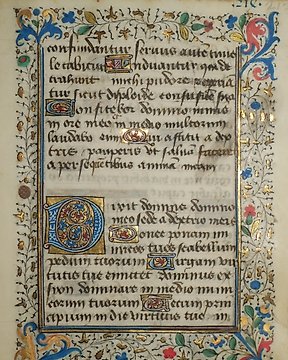 confundantur servus aute tuus
letabitur Induantur qui de
trahunt michi pudore
sicut diploide confusione sua
Confitebor domino nimis
in ore meo in medio multorum
laudabo eum Quia astitit a dex
tris pauperis ut salvam faceret
a persequentibus animam meam
Dixit dominus domino
meo sede a dextris meis
Donec ponam ini
micos tuos scabellum
pedum tuorum Virgam vir
tutis tue emittet dominus ex
syon dominare in medio inimi
corum tuorum Tecum prin
cipium in die virtutis tue in